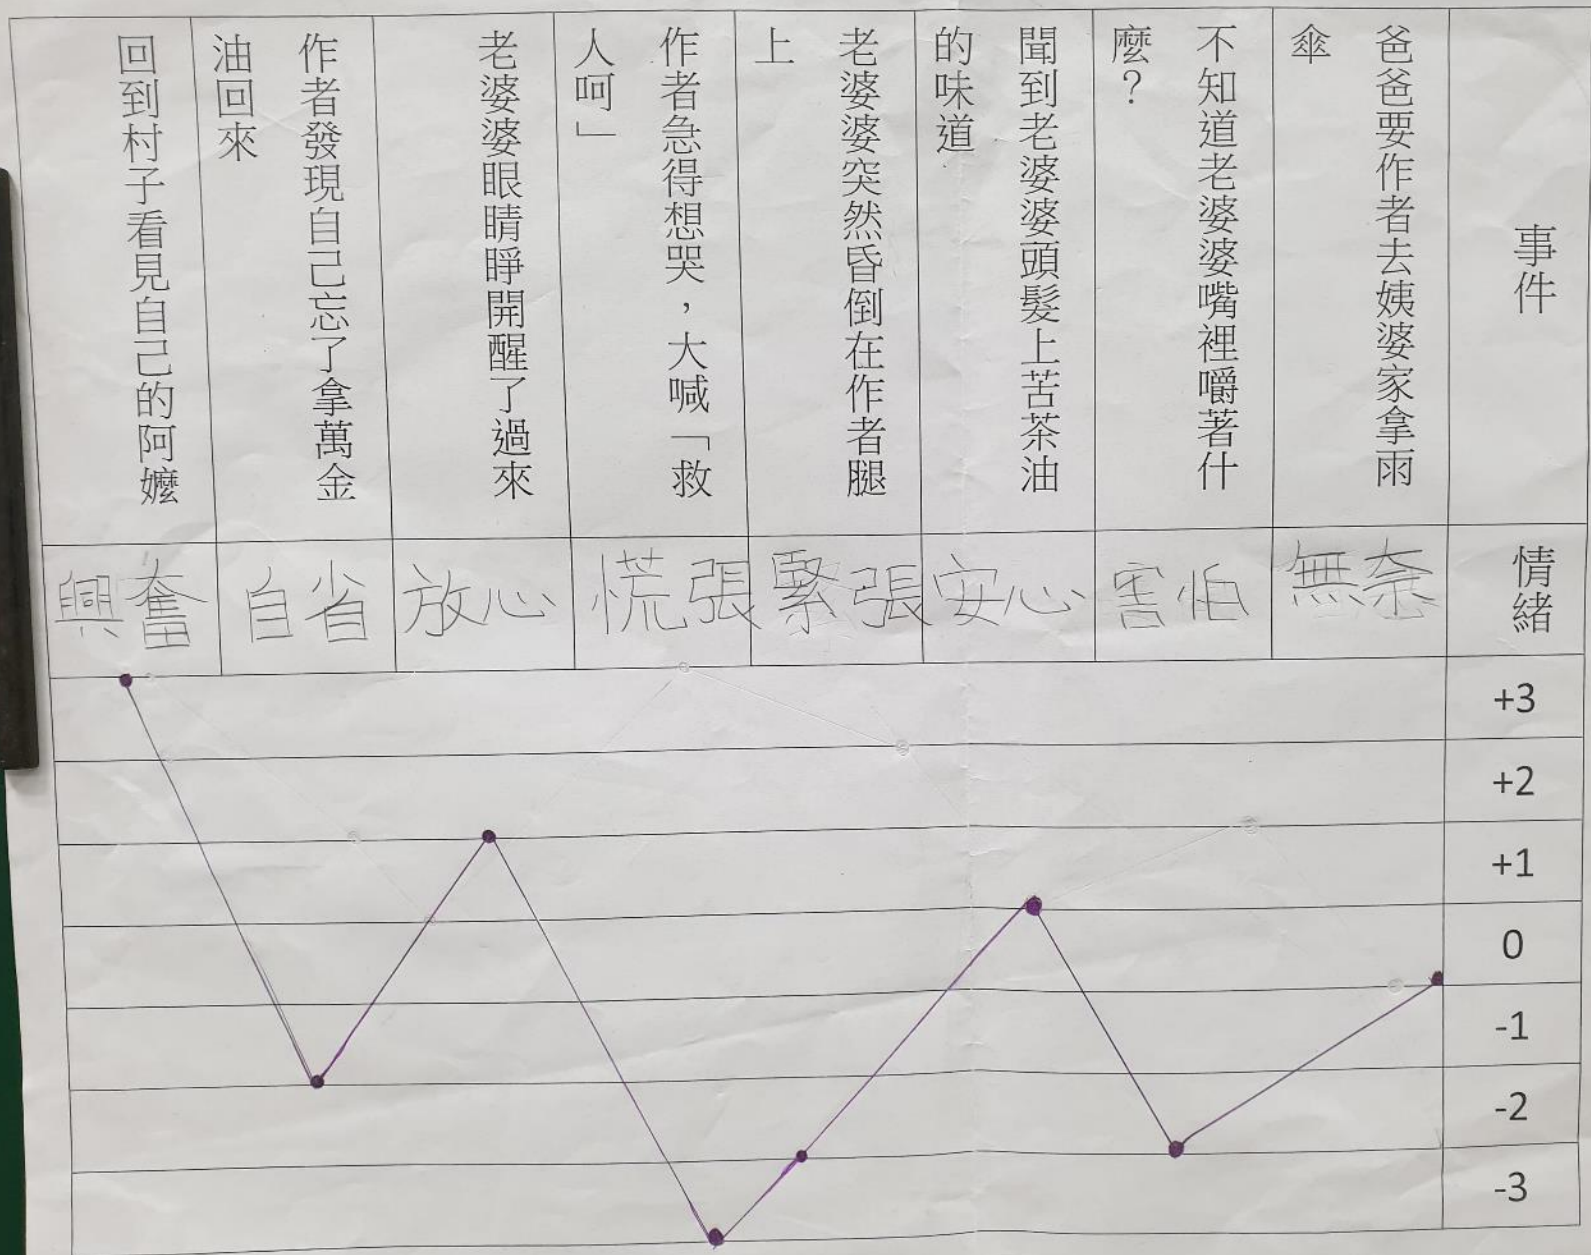 事件
爸爸要作者去姨婆家拿雨
傘
不知道老婆婆嘴裡嚼著什
麼？
聞到老婆婆頭髮上苦茶油
的味道
老婆婆突然昏倒在作者腿
上
作者急得想哭，大喊「救
人呵」
老婆婆眼睛睜開醒了過來
作者發現自己忘了拿萬金
油回來
回到村子看見自己的阿嬤
情緒
無奈
害怕
安心
緊張
慌張
放心
自省
興奮
+3
+2
+1
0
-1
-2
-3